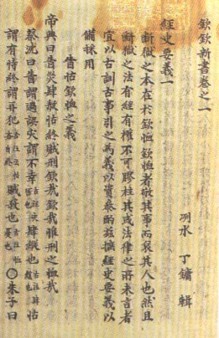 欽欽新書卷之一
洌水 丁鏞 輯
經史要義一
斷獄之本在於欽恤欽恤者敬其事而哀其人也然且
斷獄之法有經有權不可膠柱其或法律之所未言者
宜以古訓古事引之爲義以資參酌玆掇經史要義以
備採用
眚怙欽恤之義
帝典曰眚災肆赦怙終賊刑欽哉欽哉惟刑之恤哉
蔡沈曰眚謂過誤災謂不幸肆縱也怙
謂有恃終謂再犯賊殺也○朱子曰